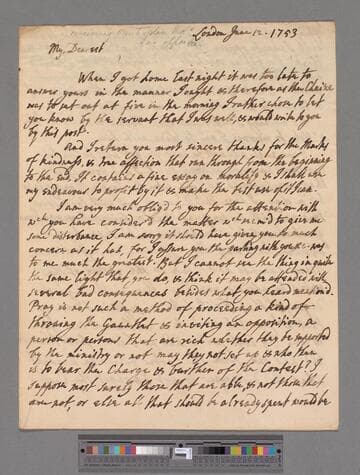 London June 12. 1753
My Dearest
When I got home last night it was too late to
answer yours in the manner I ought & therefore as the Chaise
was to set out at five in the morning I rather chose to let
you know by the servant that I was well, & would write to you
by this post.
And I return you most sincere thanks for the Marks
of kindness, & true affection that run through from the beginning
to the end. It contains a fine essay on morality & I shall use
my endeavour to profit by it & make the best use of it I can.
I am very much oblig'd to you for the attention with
wch you have consider'd the matter wch seem'd to give me
some disturbance. I am sorry it should have given you so much
concern as it has, for I assure you the parting with you was
to me much the greatest. But I cannot see the thing in quite
the same light that you do, & think it may be attended with
several bad consequences besides what you heard mention'd.
Pray is not such a method of proceeding a kind of
throwing the Gauntlet & inviting an opposition, a
person or persons that are rich whether they be supported
by the Ministry or not may they not set up & who then
is to bear the Charge & burthen of the Contest? I
suppose most surely those that are able, & not those that
are not, or else all that should be already spent would be